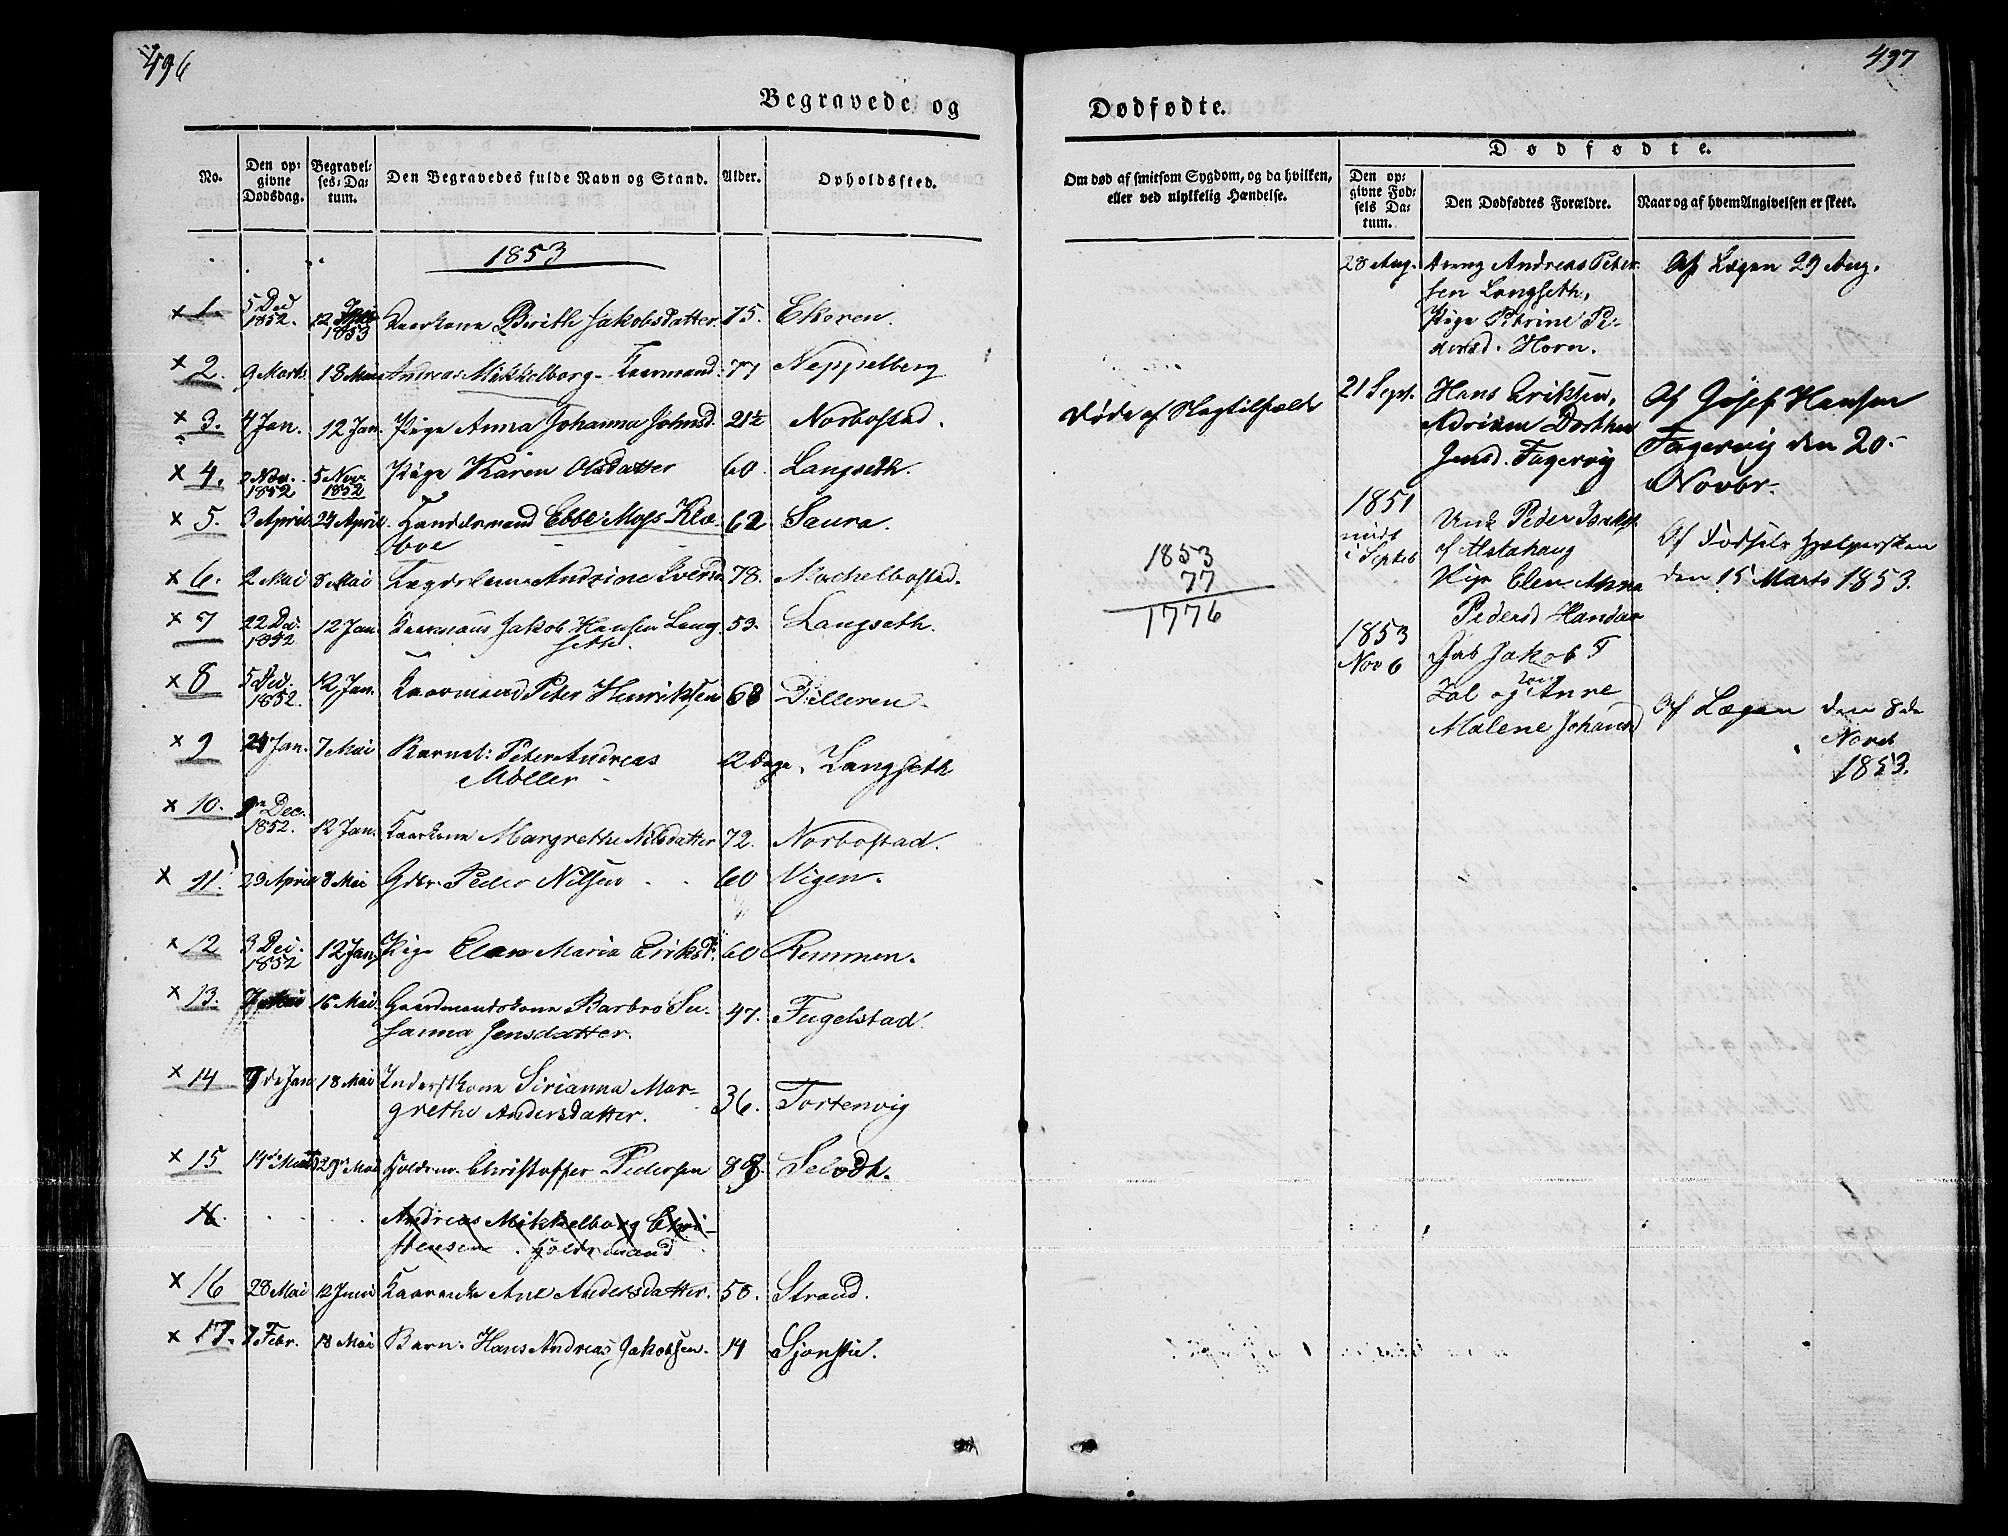 496
Begravede og
No.
Den op-
givne
Dødsdag.
Begravel-
ses-Da-
tum.
Den Begravedes fulde Navn og Stand.
Alder.
Opholdssted.
1853
1. 5 Dec 1852. 12 1853 Birith Jakobsdatter 75. Ekeren.
2. 9 Marts 18 Mai Andreas Mikkelborg - Kaarmand 77 Neppelberg
3. 4 Jan. 12 Jan. Pige Anna Johanna Johnsd. 21½ Norbostad.
4. 2 Nov. 1852 5 Nov. 1852 Pige Karen Olsdatter 60. Langseth.
5. 3 April 24 April Handelsmand Ebbe Moss Klæ-
boe 62 Saura.
6. 2 Mai 8 Mai Andrine 78. Machelbostad.
7 22 Dec. 1852 12 Jan. Jakob Hansen Lang-
seth. 53. Langseth.
8 5 Dec. 1852. 12 Jan. Kaarmand Peter Henriksen 68 Dilleren
9 24 Jan. 7 Mai Barnet: Peter Andreas
Möller 12 Dage. Langseth
10. Dec. 1852. 12 Jan. Kaarkone Margrethe Nilsdatter 72. Norbostad.
11. 29 April 8 Mai Gdbr. Peder Nilsen 60 Vigen.
12 3 Dec. 1852 12 Jan. Pige Elen Maria Eriksd. 60 Remmen.
13. 16 Mai Gaardmandskone Barbro Su-
sanna Jensdatter. 47. Fugelstad
14 9de Jan 18 Mai Inderstkone Sirianna Mar-
grethe Andersdatter. 36. Tortenvig
15 14de Marts Christoffer Pedersen Selodk.
16. Andreas Mikkelborg Chri-
stensen. Holdsmand
16 28 Mai 12 Juni Ane Andersdatter. 50. Strand.
17. 7 Febr. 18 Mai Barn. Hans Andreas Jakobsen. 14 Sjonstie.
497
Dødfødte.
Om død af smitsom Sygdom, og da hvilken,
eller ved ulykkelig Hændelse.
Dødfødte.
Den op-
givne Fød-
sels Da-
tum.
Den Dødfødtes Forældre.
Naar og af hvem Angivelsen er skeet.
28 Aug. Andreas Peter-
sen Langseth,
Pige Petrine Pe-
dersd. Horn. Af Lægen 29 Aug.
Døde af Slagtilfælde
21 Sept. Hans Eriksen,
Dorthea
Jensd. Fagervig Af Josef Hansen
Fagervig den 20
Novbr.
1853
77
1776
1851
midt
i Septeb Peder
af Alstahaug
Pige Elen Anna
Pedersd Af Fødsels Hjælpersken
den 15 Marts 1853.
1853
Nov 6 Jakob
og Anne
Malene Johansd Af Lægen den 8de
Novb
1853.